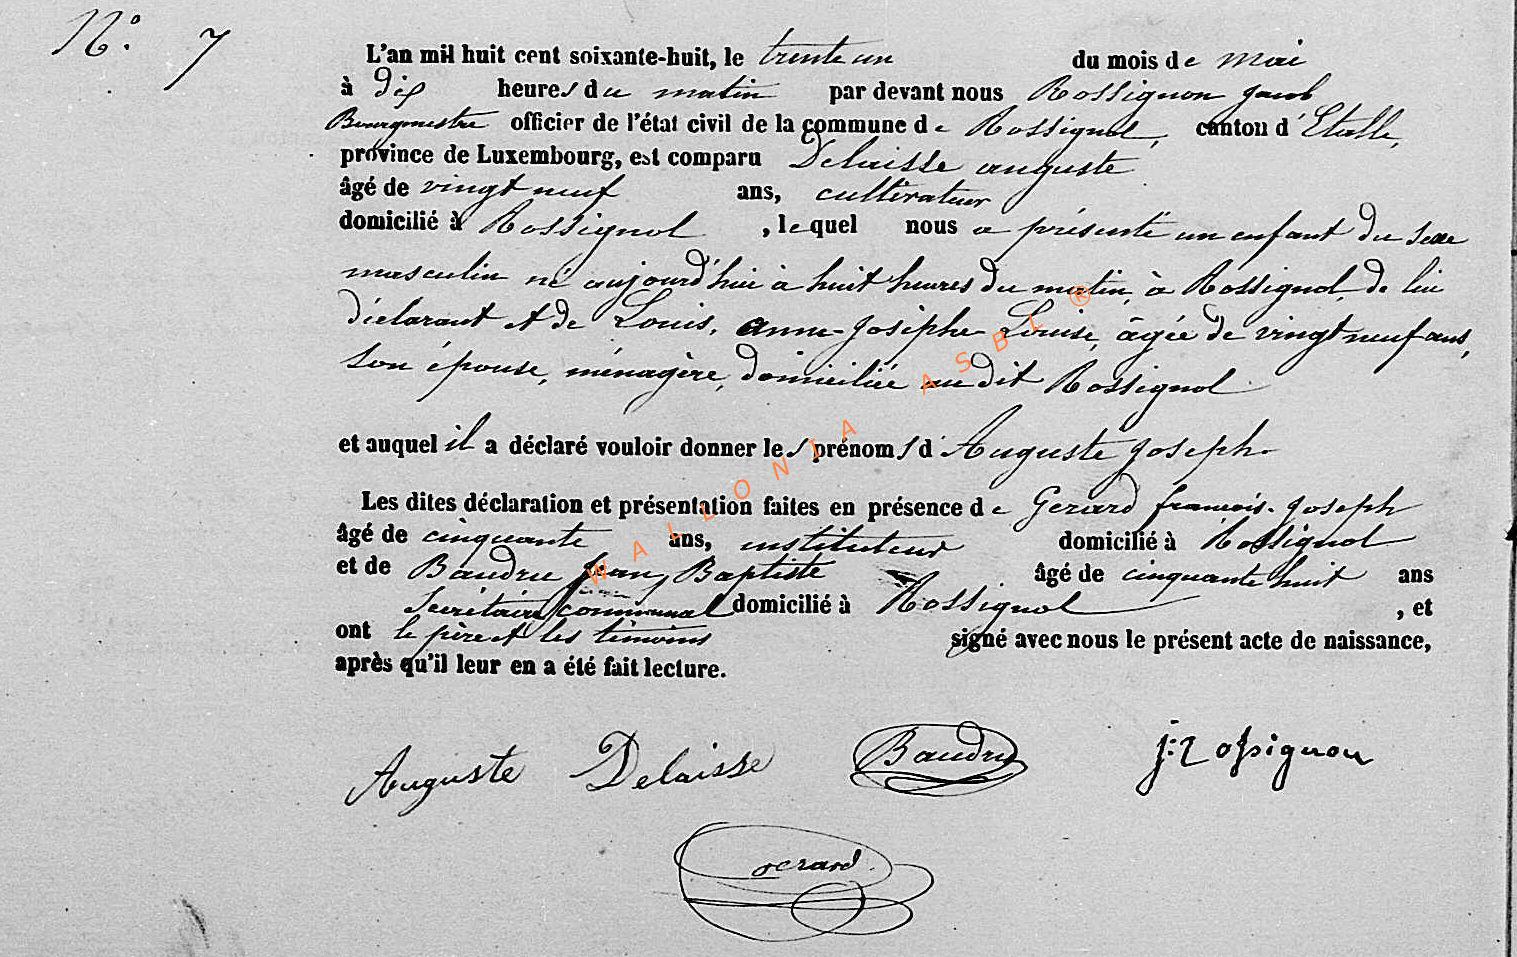 N.º 7
L'an mil huit cent soixante-huit, le trente un du mois de mai
à dix heures du matin par devant nous Rossignon Jacob
Bourgmestre officier de l'état civil de la commune de Rossignol, canton d'Etalle,
province de Luxembourg, est comparu Delaisse auguste
âgé de vingt neuf ans, cultivateur
domicilié à Rossignol, lequel nous a présenté un enfant du sexe
masculin né aujourd'hui à huit heures du matin, à Rossignol, de lui
déclarant et de Louis, anne-Josèphe-Louise, âgée de vingt neuf ans,
son épouse, ménagère, domiciliée au dit Rossignol
et auquel il a déclaré vouloir donner les prénoms d'Auguste Joseph
Les dites déclaration et présentation faites en présence de Gérard françois-Joseph
âgé de cinquante ans, instituteur domicilié à Rossignol
et de Baudru Jean, Baptiste âgé de cinquante huit ans
Secrétaire communal domicilié à Rossignol, et
ont le père et les témoins signé avec nous le présent acte de naissance,
après qu'il leur en a été fait lecture.
Auguste Delaisse Baudru J: Rossignon
Gerard
WALLONIA ASBL ®